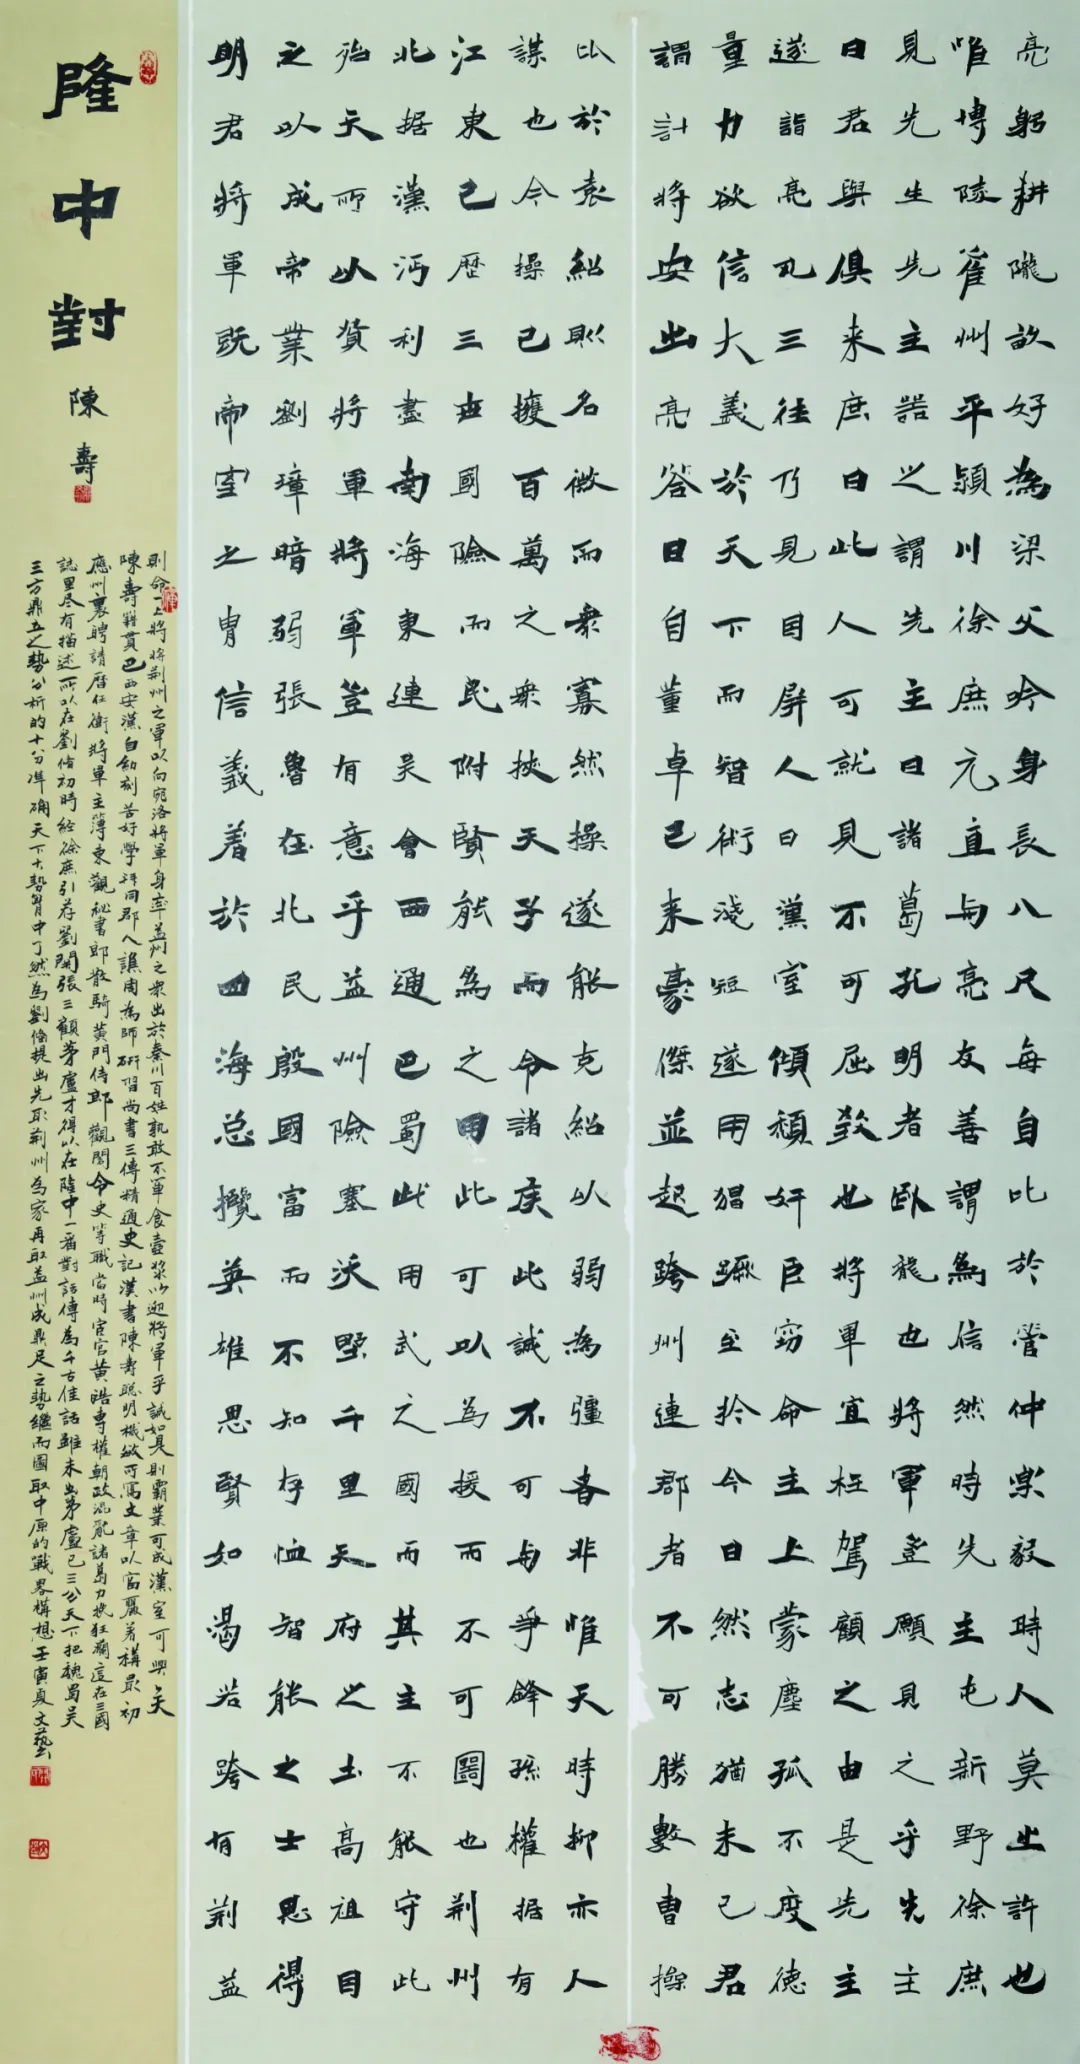 亮躬耕隴畝好為梁父吟身長八尺每自比於管仲楽毅時人莫之許也
唯博陵崔州平潁川徐庶元直与亮友善謂為信然時先主屯新野徐庶
見先生先主器之謂先主曰諸葛孔明者臥龍也將軍豈願見之乎先主
曰君與俱来庶曰此人可就見不可屈致也將軍宜枉駕顧之由是先主
遂詣亮凡三往乃見因屏人曰漢室傾頹奸臣窃命主上蒙塵孤不度德
量力欲信大義於天下而智術淺短遂用猖蹶至於今日然志猶未已君
謂計將安出亮答曰自董卓已来豪傑並起跨州連郡者不可勝數曹操
比於袁紹則名微而衆寡然操遂能克紹以弱為彊者非惟天時抑亦人
謀也今操已擁百萬之衆挾天子而令諸侯此誠不可与爭鋒孫權据有
江東已歷三世國險而民附賢能為之用此可以為援而不可圖也荆州
北据漢沔利盡南海東連吴會西通巴蜀此用武之國而其主不能守此
殆天所以資將軍將軍豈有意乎益州險塞沃野千里天府之土高祖因
之以成帝業劉璋暗弱張魯在北民殷國富而不知存恤智能之士思得
明君將軍既帝室之胄信義著於四海总攬英雄思賢如渴若跨有荆益
隆中對 陳壽
則命一上將將荆州之軍以向宛洛將軍身率益州之衆出於秦川百姓孰敢不箪食壺漿以迎將軍乎誠如是則霸業可成漢室可興矣
陳壽籍貫巴西安漢自幼刻苦好學拜同郡人譙周為師研習尚書三傳精通史記漢書陳壽聪明機敏所寫文章以富麗著稱最初
應州裏聘請曆任衛將軍主薄東觀秘書郎散騎黄門侍郎觀閣令史等職當時宦官黄皓專權朝政混亂諸葛力挽狂瀾這在三國
誌里尽有描述所以在劉備初時經徐庶引荐劉關張三顧茅廬才得以在隆中一番對話傳為千古佳話雖未出茅廬已三分天下把魏蜀吴
三方鼎立之勢分析的十分準确天下大勢胷中了然為劉備提出先取荆州為家再取益州成鼎足之勢繼而圖取中原的戰畧構想壬寅夏文藝